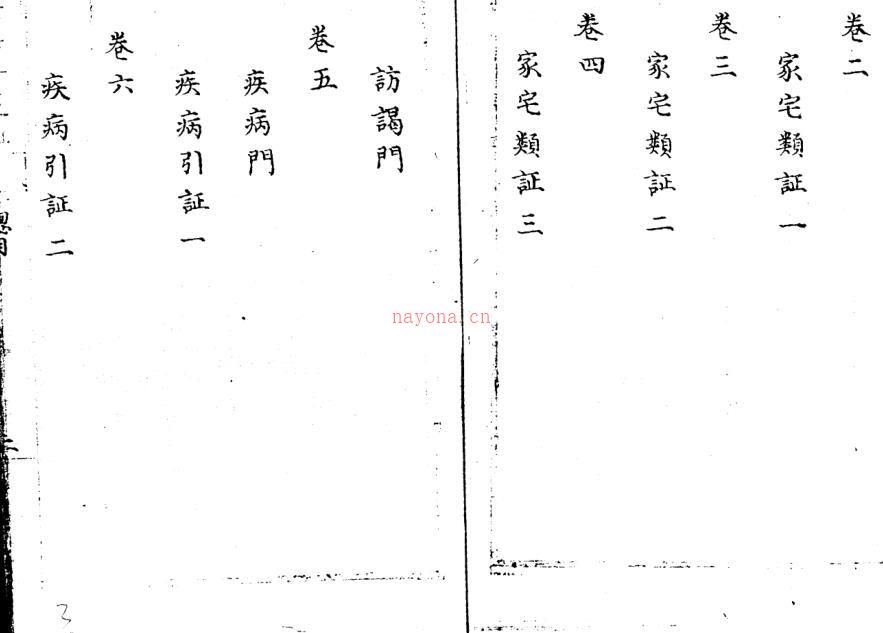 卷二
家宅類証一
卷三
家宅類証二
卷四
家宅類証三
訪謁門
卷五
疾病門
疾病引証一
卷六
疾病引証二
nayona.cn
3